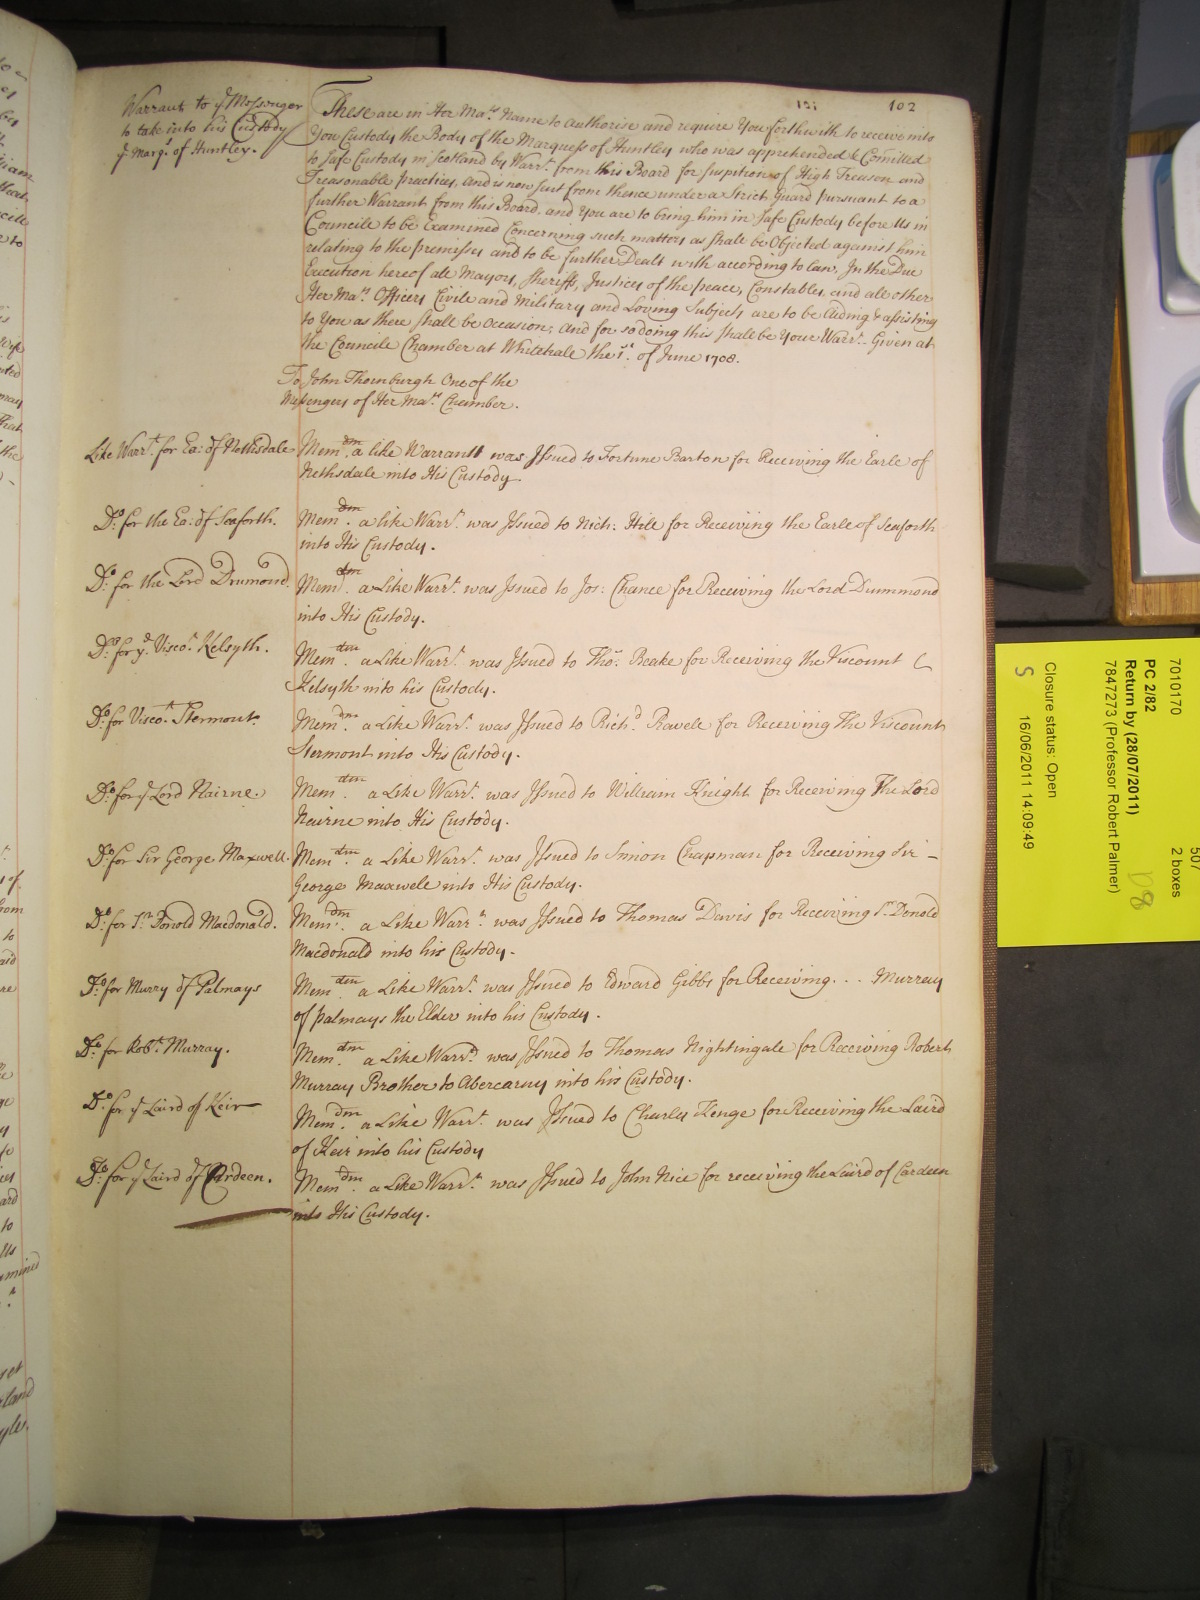 101 102
Warrant to ye Messenger
to take into his Custody
ye Marqs. of Huntley.
These are in Her Mats. Name to authorise and require You forthwith to receive into
You Custody the Body of the Marquess of Huntley who was apprehended & Comitted
to Safe Custody in Scotland by Warrt. from this Board for Suspition of High Treason and
Treasonable practices, and is now sent from thence under a Strict Guard pursuant to a
further Warrant from this Board, and You are to bring him in Safe Custody before Us in
Councile to be Examined Concerning such matters as shall be Objected against him
relating to the premisses and to be further Dealt with according to Law. In the Due
Execution hereof all Mayors, Sheriffs, Justices of the peace, Constables, and all other
Her Mats. Officers Civile and Military and Loving Subjects are to be Aiding & assisting
to You as there shall be occasion; and for so doing this shall be Your Warrt. Given at
the Councile Chamber at Whitehale the 1st. of June 1708.
To John Thornburgh One of the
Messengers of Her Mats. Chamber.
Like Warrt. for Ea: of Nethisdale
Memdm. a like Warrantt was Issued to Fortune Barton for Receiving the Earle of
Nethsdale into His Custody
Do. for the Ea: of Seaforth.
Memdm. a like Warrt. was Issued to Nich: Hill for Receiving the Earle of Seaforth
into His Custody.
Do. for the Lord Drumond.
Memdm. a Like Warrt. was Issued to Jos: Chance for Receiving the Lord Drummond
into His Custody.
Do. for ye. Visco. Kelsyth.
Memdm. a Like Warrt. was Issued to Tho: Beake for Receiving the Viscount
Kelsyth into his Custody.
Do. for Viscot. Stermont
Memdm. a Like Warrt. was Issued to Richd. Ravell for Receiving The Viscount
Stermont into His Custody.
Do. for ye Lord Nairne.
Memdm. a Like Warrt. was Issued to William Knight for Receiving The Lord
Nairne into His Custody.
Do. for Sir George Maxwell.
Memdm. a Like Warrt. was Issued to Simon Chapman for Receiving Sir -
George Maxwele into His Custody.
Do. for Sr. Donold Macdonald.
Memdm. a Like Warrt. was Issued to Thomas Davis for Receiving Sr. Donold
Macdonald into his Custody.
Do. for Murry of Palmays
Memdm. a Like Warrt. was Issued to Edward Gibbs for Receiving . . . Murray
of palmays the Elder into his Custody.
Do. for Robt. Murray.
Memdm. a Like Warrt. was Issued to Thomas Nightingale for Receiving Robert
Murray Brother to Abercarny into his Custody.
Do. for ye Laird of Keir
Memdm. a Like Warrt. was Issued to Charles Kenge for Receiving the Laird
of Keir into his Custody
Do. for ye Laird of Cardeen.
Memdm. a Like Warrt. was Issued to John Nice for receiving the Laird of Cardeen
into His Custody.
507
2 boxes
7010170
PC 2/82
Return by (28/07/2011)
7847273 (Professor Robert Palmer)
Closure status: Open
S 16/06/2011 14:09:49